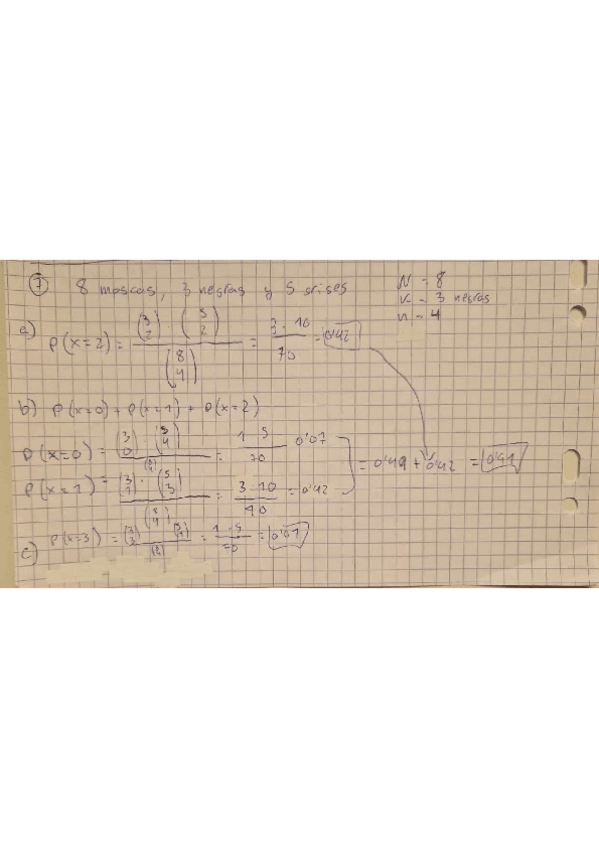 7 8 moscas, 3 negras y 5 grises
N = 8
K = 3 negras
n = 4
a) P(x=2) = (3 2) · (5 2) / (8 4) = 3 · 10 / 70 = 0'42
b) P(x=0) + P(x=1) + P(x=2)
P(x=0) = (3 0) · (5 4) / (8 4) = 1 · 5 / 70 0'07
P(x=1) = (3 1) · (5 3) / (8 4) = 3 · 10 / 70 = 0'42
= 0'49 + 0'42 = 0'91
c) P(x=3) = (3 3) (5 1) / (8 4) = 1 · 5 / 70 = 0'07